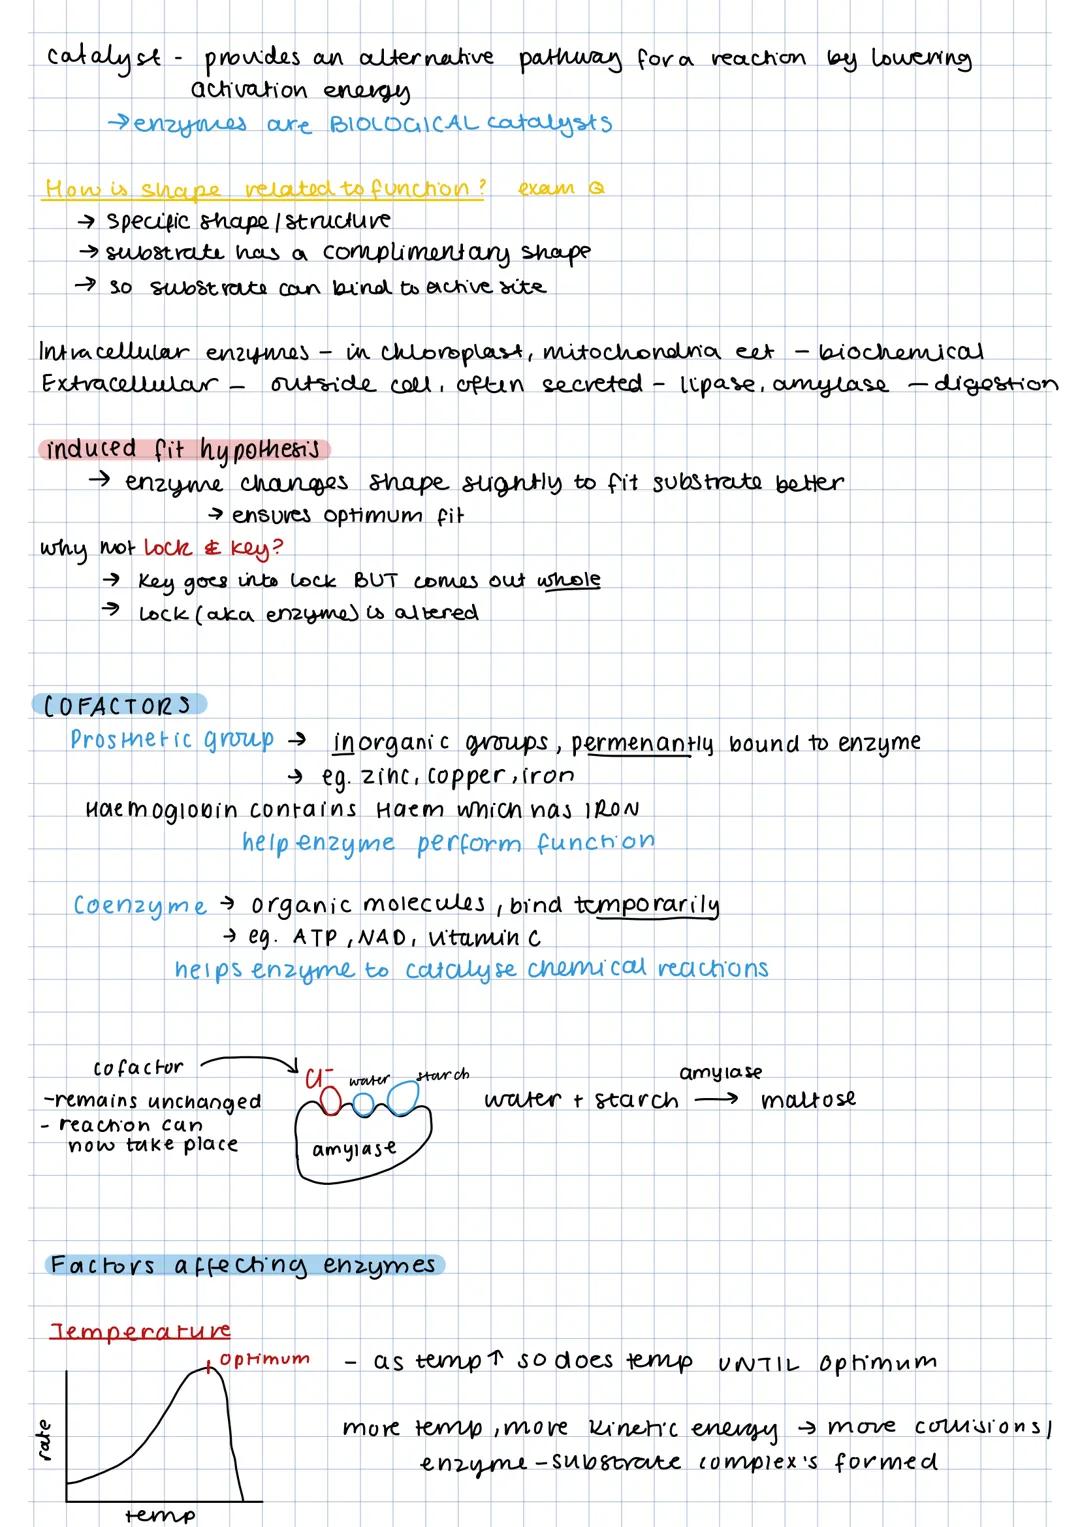 catalyst - provides an alternative pathway for a reaction by lowering
activation energy
→ enzymes are BIOLOGICAL catalysts
How is shape related to function? exam Q
→ specific shape / structure
→ substrate has a complimentary shape
→ so substrate can bind to active site
Intracellular enzymes - in chloroplast, mitochondria ect - biochemical
Extracellular - outside cell, often secreted - lipase, amylase - digestion
induced fit hypothesis
→ enzyme changes shape slightly to fit substrate better
→ ensures optimum fit
why not lock & key?
→ Key goes into lock BUT comes out whole
→ Lock (aka enzyme) is altered
COFACTORS
Prosthetic group → inorganic groups, permenantly bound to enzyme
→ eg. zinc, copper, iron
Haemoglobin contains Haem which has IRON
help enzyme perform function
Coenzyme → organic molecules, bind temporarily
→ eg. ATP, NAD, vitamin C
helps enzyme to catalyse chemical reactions
cofactor
-remains unchanged
- reaction can
now take place
Cl⁻ water starch
amylase
amylase
water + starch → maltose
Factors affecting enzymes
Temperature
optimum
rate
temp
- as temp ↑ so does temp UNTIL optimum
more temp, more kinetic energy → more collisions/
enzyme-substrate complex's formed